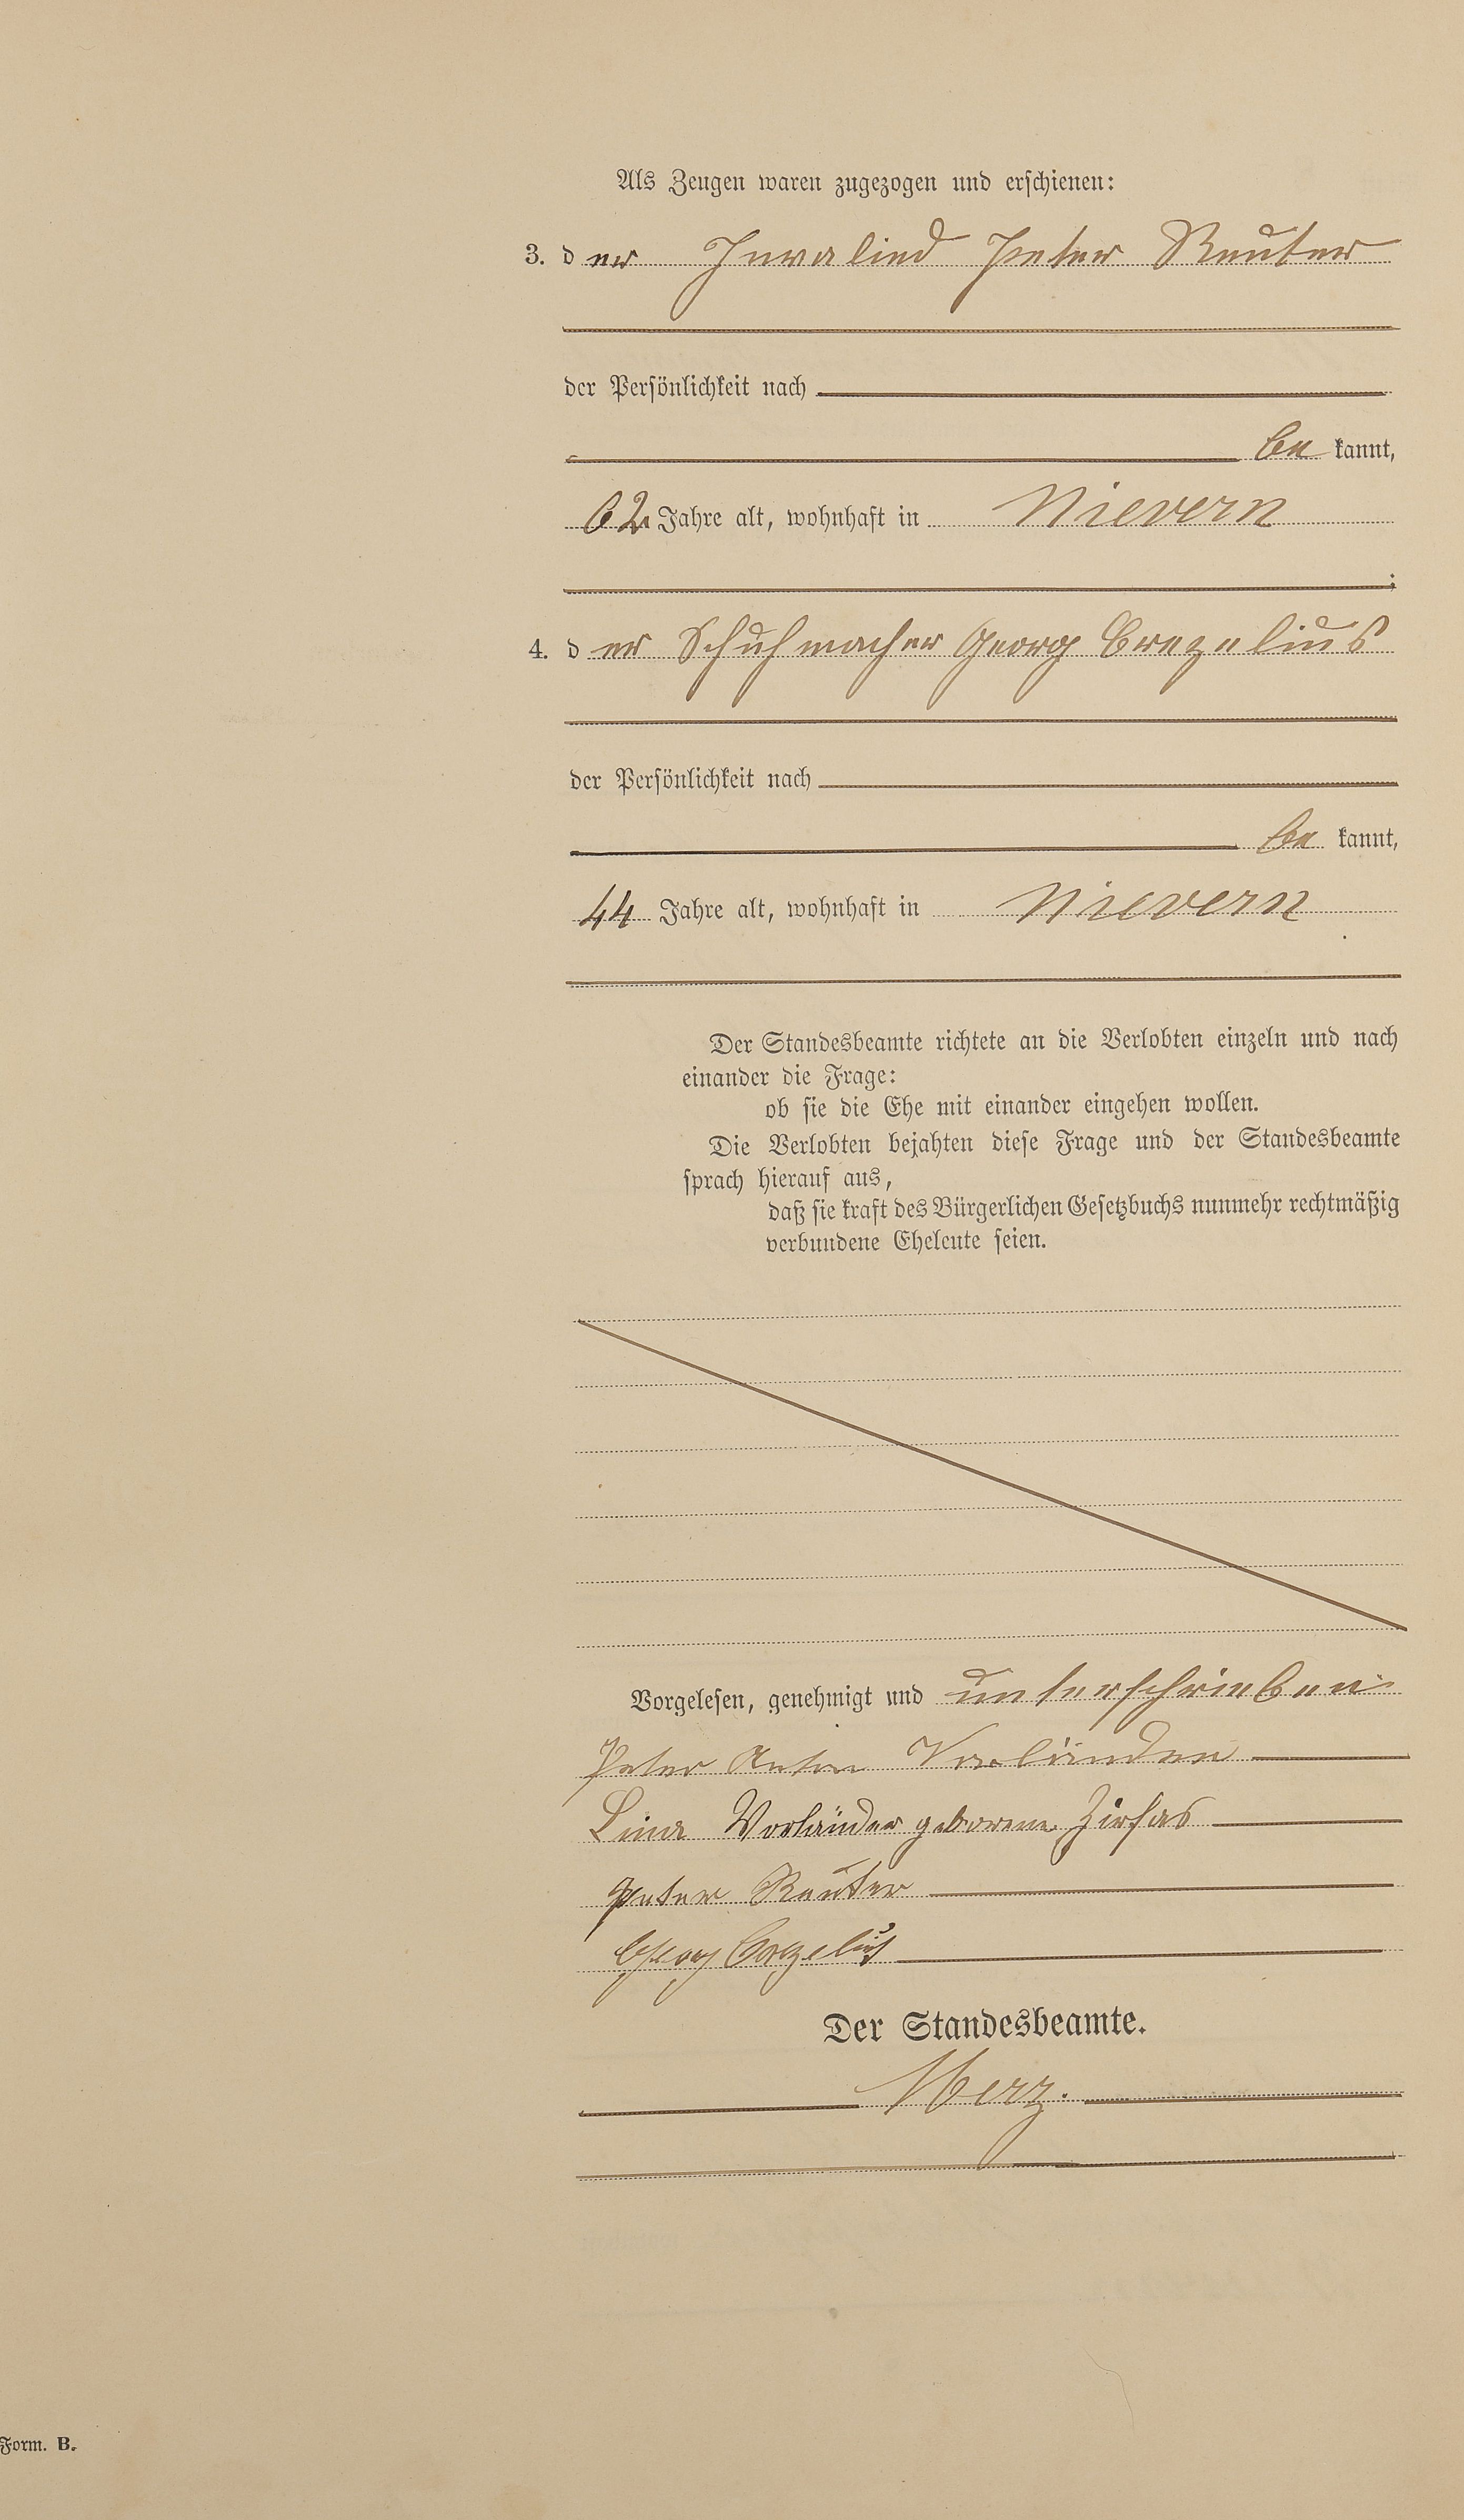 Als Zeugen waren zugezogen und erschienen:
3. der Invalied Peter Reuter
der Persönlichkeit nach
be kannt,
62 Jahre alt, wohnhaft in Nievern
;
4. der Schuhmacher Georg Crezelius
der Persönlichkeit nach
be kannt,
44 Jahre alt, wohnhaft in Nievern
.
Der Standesbeamte richtete an die Verlobten einzeln und nach
einander die Frage:
ob sie die Ehe mit einander eingehen wollen.
Die Verlobten bejahten diese Frage und der Standesbeamte
sprach hierauf aus,
daß sie kraft des Bürgerlichen Gesetzbuchs nunmehr rechtmäßig
verbundene Eheleute seien.
Vorgelesen, genehmigt und unterschrieben
Peter Anton Vorländer
Lina Vorländer geborene Zirfas
Peter Reuter
Georg Crezelius
Der Standesbeamte.
Merz.
Form. B.